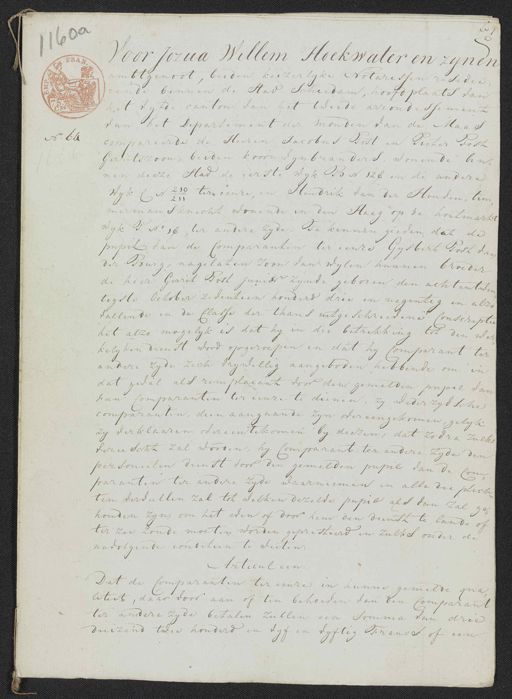 1160a
Voor Jozua Willem Hoekwater en zynen
amttgenoot, beiden keizerlyke Notarissen reside
rende binnen de Stad Schiedam, hoofdplaats van
het derde canton van het tweede arrondissement
van het Departement der Monden van de Maas
No 64
compareerde de Heeren Jacobus Post en Pieter Post
Gerritszoon, beiden koornwynbranders wonende bin
nen deze Stad de eerste Wyk B No 126 en de andere
Wyk C No 210/211 ter eenre, en Hendrik van der Houden, tim
mermansknecht wonende in den Haag op de houtmarkt
wyk P No 16, ter andere zyde. Te kennen gevende dat de
pupil van de comparanten ter eenre Gysbert Post van
der Burg, nagelaten zoon van wylen hunnen broeder
de heer Gerrit Post junior zynde geboren den acht en twin
tigste October zeventien honderd drie en negentig en alzo
vallende in de Classe der thans uitgeschrevene Conscriptie
het alzo mogelyk is dat hy in die betrekking tot den wer
kelyken dienst word opgeroepen en dat hy Comparant ter
andere zyde zich vrywillig aangeboden hebbende om in
dat geval als remplaçant voor den gemelden pupil van
hun comparanten ter eenre te dienen, zy wederzydsche
comparanten, dien aangaande zyn overeengekomen gelyk
zy verklaaren overeentekomen by deezen, dat zodra zulks
vereischt zal worden, hy Comparant ter andere zyde den
personeelen dienst voor den gemelden pupil van de Com
paranten ter andere zyde waarneemen en alle die plich
ten vervullen zal tot welken dezelfde pupil als dan zal ge
houden zyn om het even of door hem den dienst te lande of
ter zee zoude moeten worden gepresteerd en zulks onder de
navolgende conditien te weten
Articul een
Dat de Comparanten ter eenre in hunne gemelde qua
liteit, daar voor aan of ten behoeven van den Comparant
ter andere zyde betalen zullen een somma van drie
duizend twee honderd en vyf en vyftig Francs of een